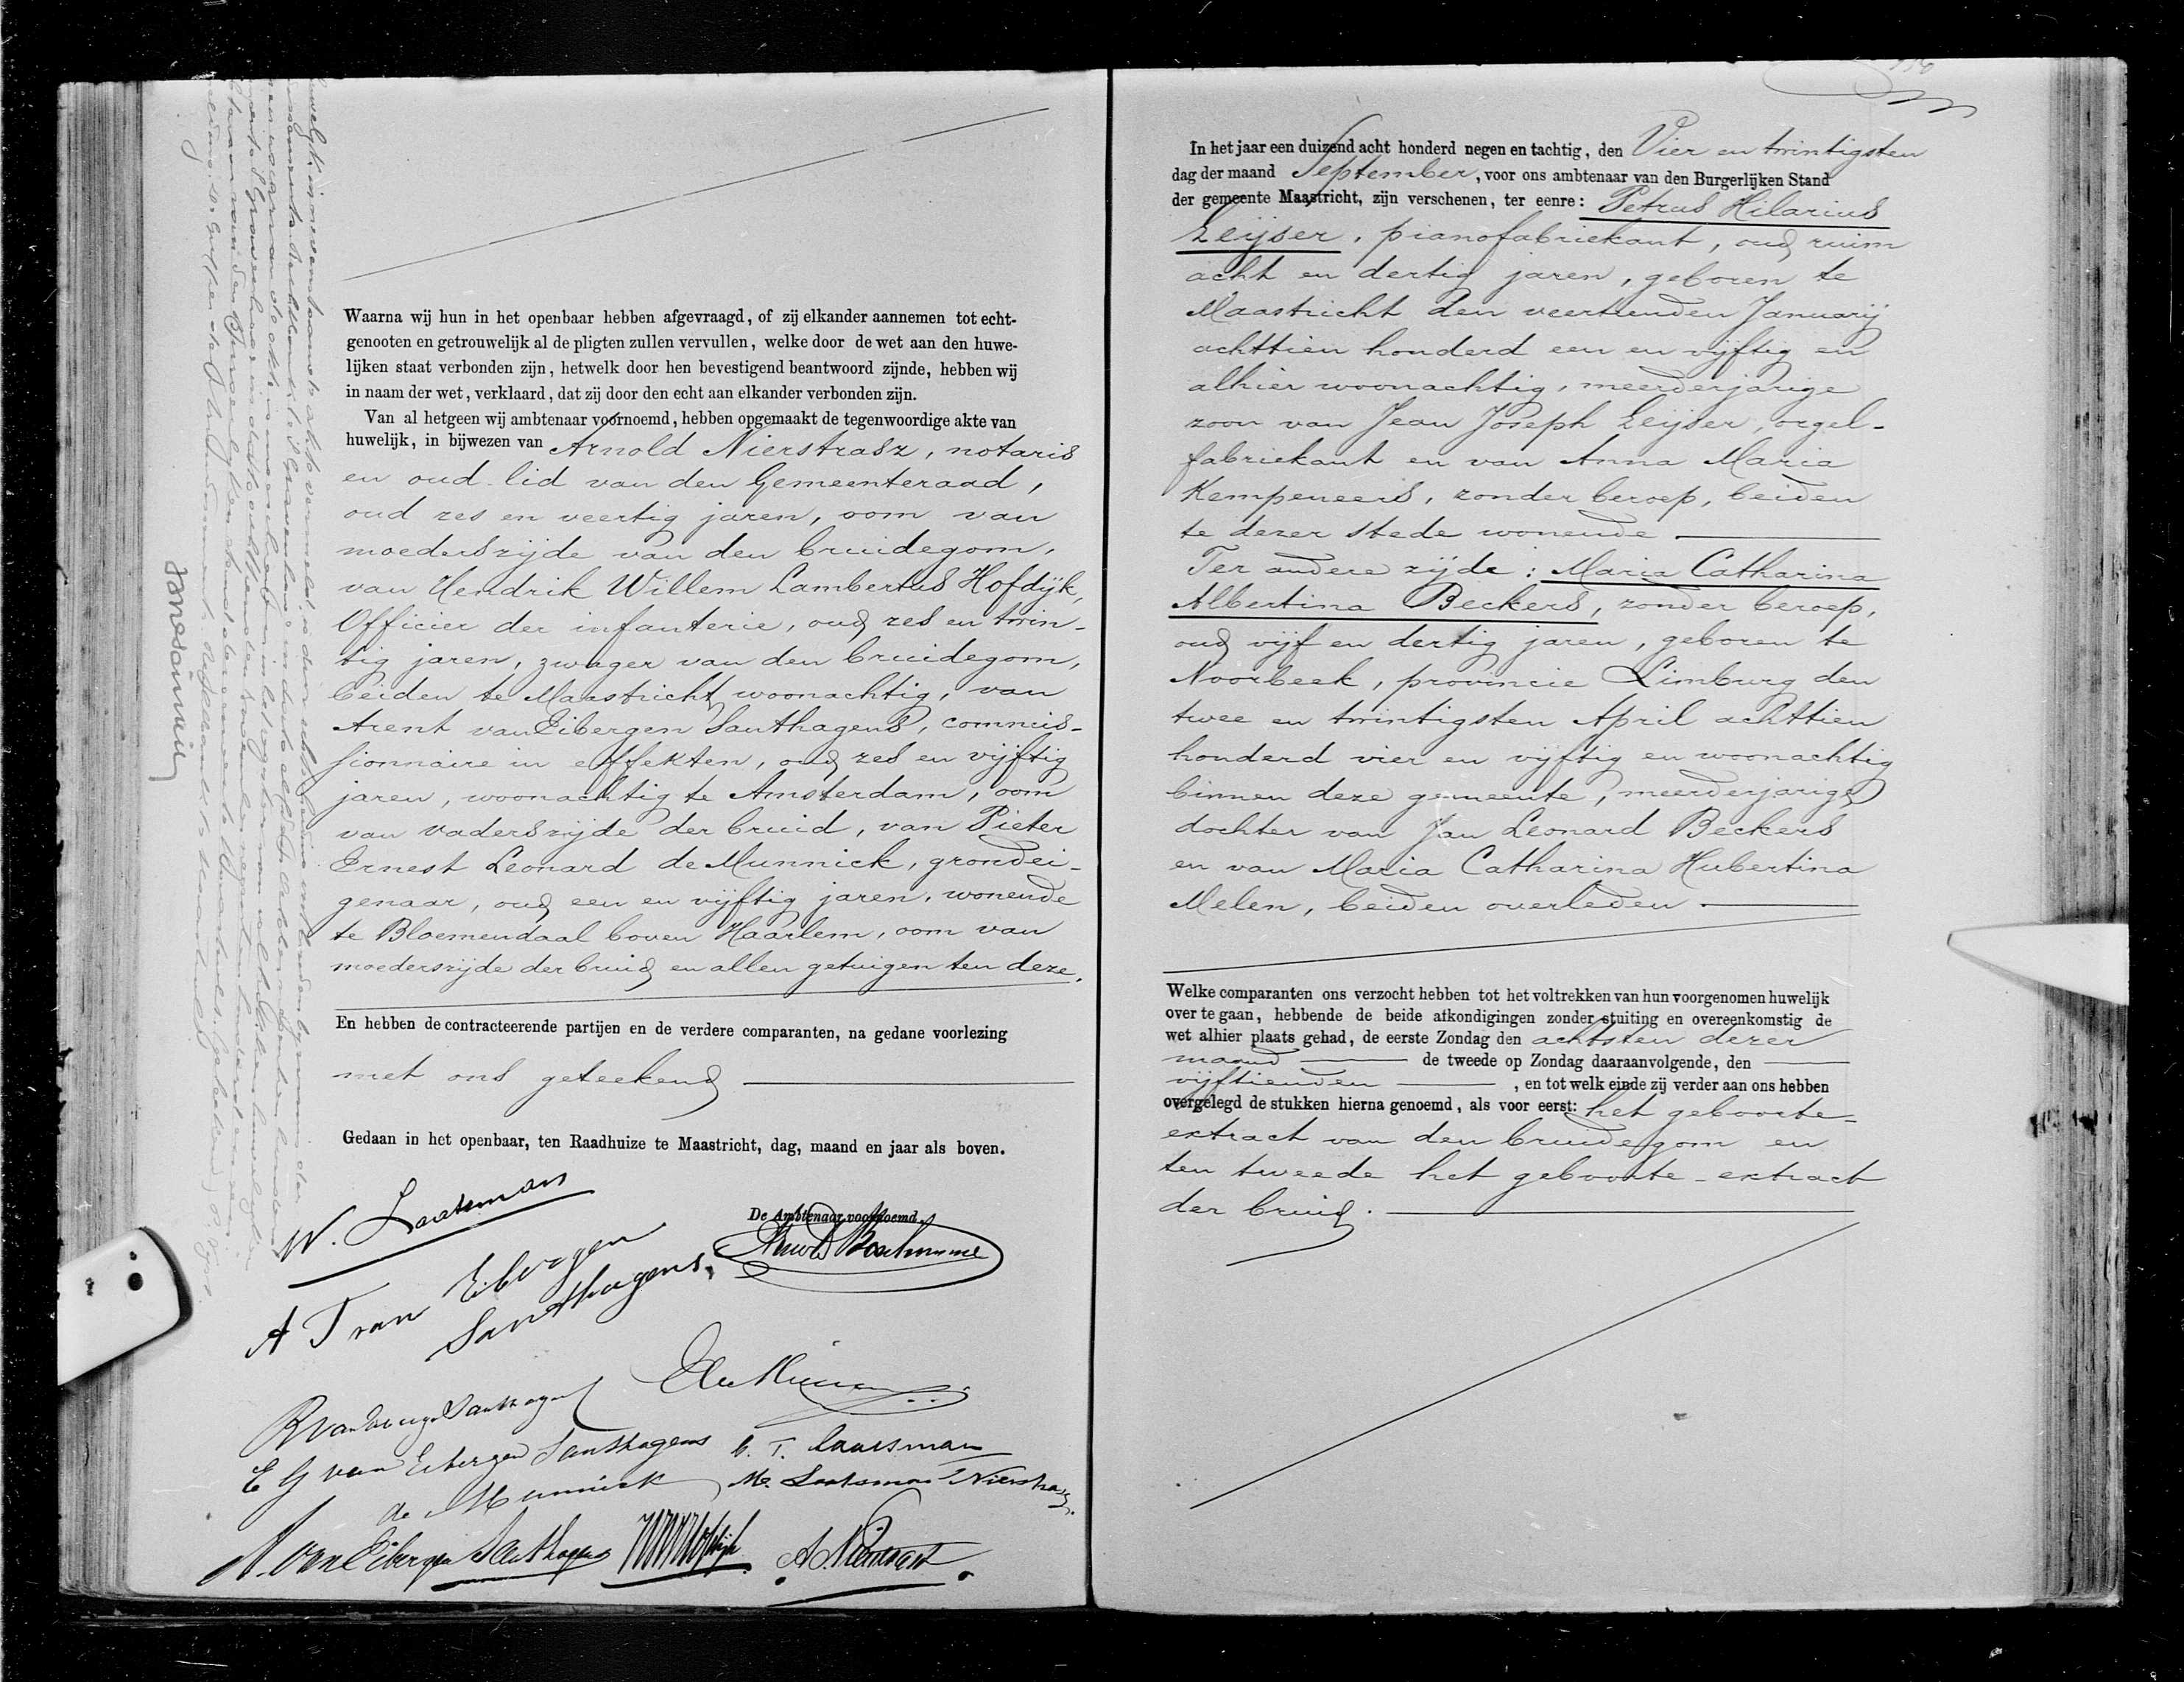 Waarna wij hun in het openbaar hebben afgevraagd, of zij elkander aannemen tot echt-
genooten en getrouwelijk al de pligten zullen vervullen, welke door de wet aan den huwe-
lijken staat verbonden zijn, hetwelk door hen bevestigend beantwoord zijnde, hebben wij
in naam der wet, verklaard, dat zij door den echt aan elkander verbonden zijn.
Van al hetgeen wij ambtenaar voornoemd, hebben opgemaakt de tegenwoordige akte van
huwelijk, in bijwezen van Arnold Nierstrasz, notaris
en oud-lid van den Gemeenteraad,
oud zes en veertig jaren, oom van
moederszijde van den bruidegom,
van Hendrik Willem Lambertus Hofdijk,
Officier der infanterie, oud zes en twin-
tig jaren, zwager van den bruidegom,
beiden te Maastricht woonachtig, van
Arent van Eibergen Santhagens, commis-
sionnaire in effekten, oud zes en vijftig
jaren, woonachtig te Amsterdam, oom
van vaderszijde der bruid, van Pieter
Ernest Leonard de Munnick, grondei-
genaar, oud een en vijftig jaren, wonende
te Bloemendaal boven Haarlem, oom van
moederszijde der bruid en allen getuigen ten deze.
En hebben de contracteerende partijen en de verdere comparanten, na gedane voorlezing
met ons geteekend
Gedaan in het openbaar, ten Raadhuize te Maastricht, dag, maand en jaar als boven.
W. Laatsman
De Ambtenaar voornoemd,
A T van Eibergen
Santhagens,
E G van Eibergen Santhagens
de Munnick
C. T. Laatsman
M. Laatsman Nierstrasz.
N. van Eibergen Santhagens
A. Nierstrasz
In het jaar een duizend acht honderd negen en tachtig, den Vier en twintigsten
dag der maand September, voor ons ambtenaar van den Burgerlijken Stand
der gemeente Maastricht, zijn verschenen, ter eenre: Petrus Hilarius
Leijser, pianofabriekant, oud ruim
acht en dertig jaren, geboren te
Maastricht den veertienden Januarij
achttien honderd een en vijftig en
alhier woonachtig, meerderjarige
zoon van Jean Joseph Leijser, orgel-
fabriekant en van Anna Maria
Kempeneers, zonder beroep, beiden
te dezer stede wonende
Ter andere zijde: Maria Catharina
Albertina Beckers, zonder beroep,
oud vijf en dertig jaren, geboren te
Noorbeek, provincie Limburg den
twee en twintigsten April achttien
honderd vier en vijftig en woonachtig
binnen deze gemeente, meerderjarige
dochter van Jan Leonard Beckers
en van Maria Catharina Hubertina
Melen, beiden overleden.
Welke comparanten ons verzocht hebben tot het voltrekken van hun voorgenomen huwelijk
over te gaan, hebbende de beide afkondigingen zonder stuiting en overeenkomstig de
wet alhier plaats gehad, de eerste Zondag den achtsten dezer
maand de tweede op Zondag daaraanvolgende, den
vijftienden, en tot welk einde zij verder aan ons hebben
overgelegd de stukken hierna genoemd, als voor eerst: het geboorte-
extract van den bruidegom en
ten tweede het geboorte-extract
der bruid.